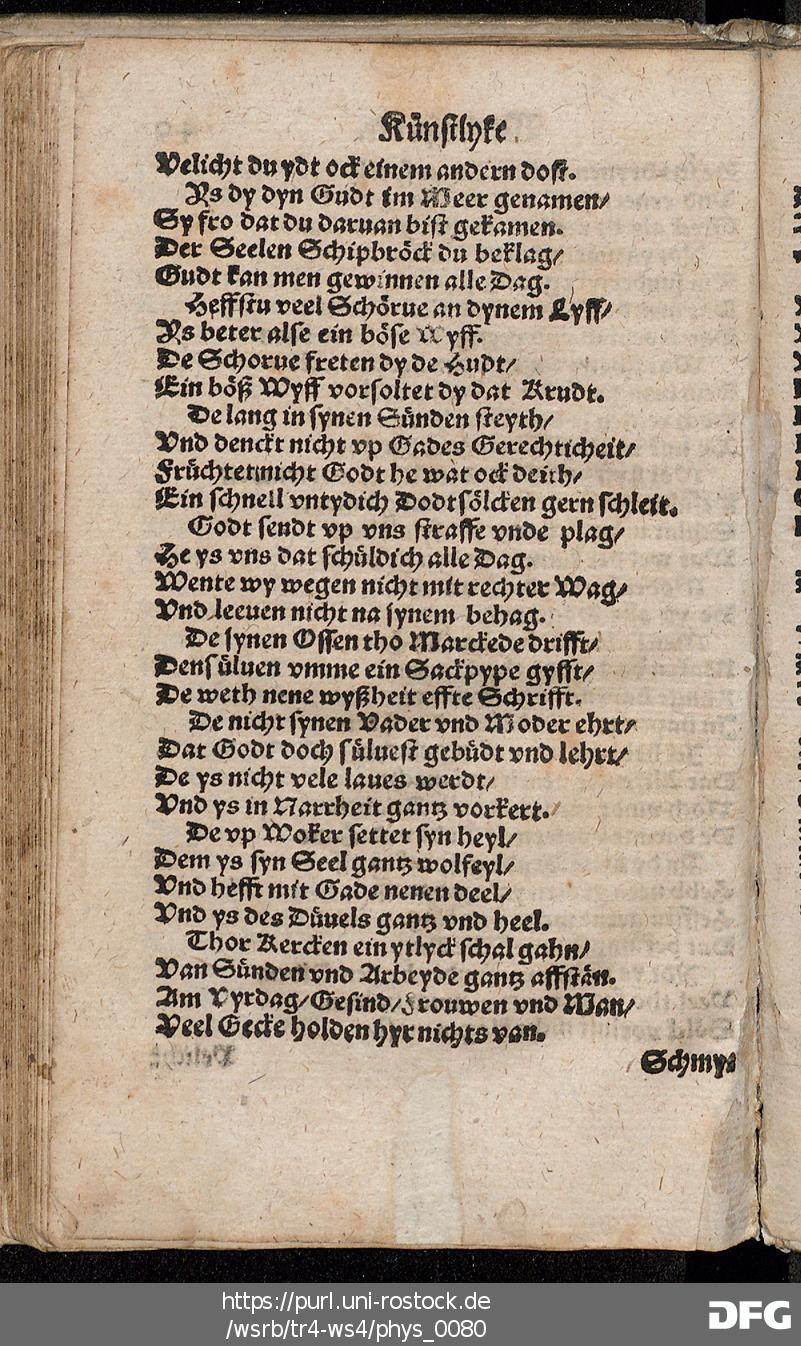 Künstlyke
Velicht du ydt ock einem andern dost.
Ys dy dyn Gudt im Meer genamen/
Sy fro dat du daruan bist gekamen.
Der Seelen Schipbröck du beklag/
Gudt kan men gewinnen alle Dag.
Heffstu veel Schörue an dynem Lyff/
Ys beter alse ein böse Wyff.
De Schorue freten dy de Hudt/
Ein böß Wyff vorsoltet dy dat Krudt.
De lang in synen Sünden steyth/
Vnd denckt nicht vp Gades Gerechticheit/
Früchtet nicht Godt he wat ock deith/
Ein schnell vntydich Dodt sölcken gern schleit.
Godt sendt vp vns straffe vnde plag/
He ys vns dat schüldich alle Dag.
Wente wy wegen nicht mit rechter Wag/
Vnd leeuen nicht na synem behag.
De synen Ossen tho Marckede drifft/
Densüluen vmme ein Sackpype gyfft/
De weth nene wyßheit effte Schrifft.
De nicht synen Vader vnd Moder ehrt/
Dat Godt doch süluest gebüdt vnd lehrt/
De ys nicht vele laues werdt/
Vnd ys in Narrheit gantz vorkert.
De vp Woker settet syn heyl/
Dem ys syn Seel gantz wolfeyl/
Vnd hefft mit Gade nenen deel/
Vnd ys des Düuels gantz vnd heel.
Thor Kercken ein ytlyck schal gahn/
Van Sünden vnd Arbeyde gantz affstän.
Am Vyrdag/Gesind/Frouwen vnd Man/
Veel Gecke holden hyr nichts van.
Schmy⸗
https://purl.uni-rostock.de
/wsrb/tr4-ws4/phys_0080
DFG